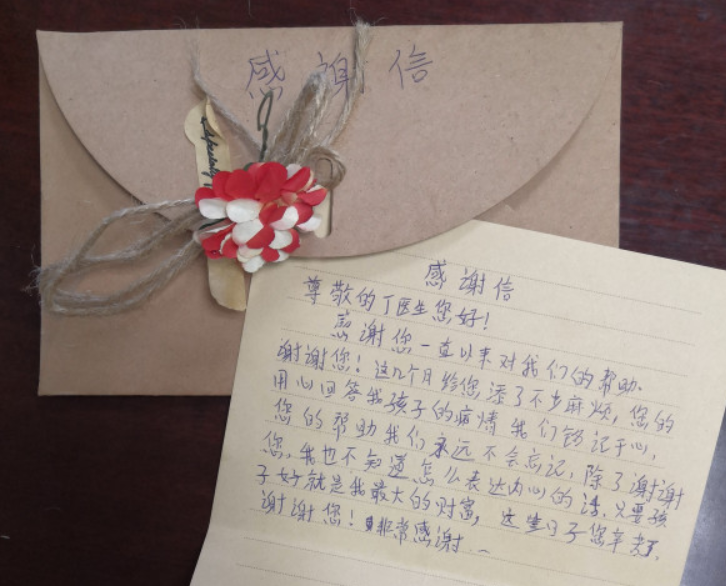 感谢信
Specially
感谢信
尊敬的丁医生您好!
感谢您一直以来对我们的帮助.
谢谢您!这几个月给您添了不少麻烦,您的
用心回答我孩子的病情我们铭记于心,
您的帮助我们永远不会忘记,除了谢谢
您,我也不知道怎么表达内心的话,只要孩
子好就是我最大的财富,这些日子您辛苦了.
谢谢您!非常感谢...